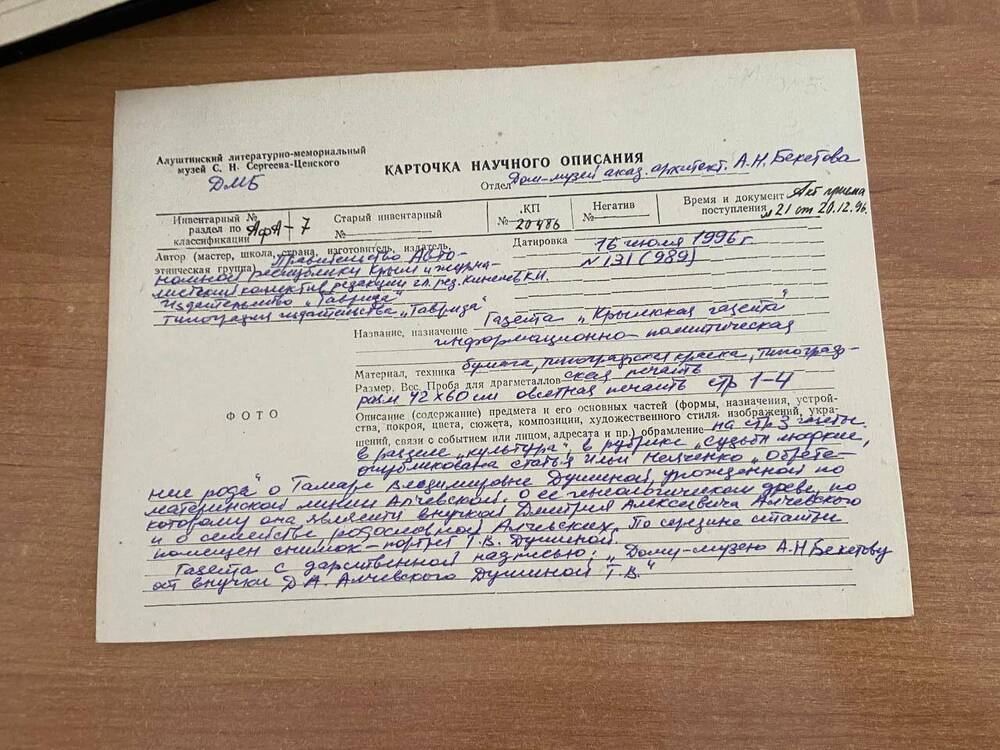 Алуштинский литературно-мемориальный
музей С. Н. Сергеева-Ценского
ДМБ
КАРТОЧКА НАУЧНОГО ОПИСАНИЯ
Отдел Дом-музей акад. архитект. А.Н. Бекетова
Инвентарный № раздел по классификации АфА-7
Старый инвентарный №
КП № 20486
Негатив №
Время и документ поступления Акт приема № 21 от 20.12.96.
Автор (мастер, школа, страна, изготовитель, издатель,
этническая группа) Правительство Авто-
номной республики Крым и журна-
листский коллектив редакции гл. ред.
Издательство „Таврида"
типография издательства „Таврида"
Датировка 16 июля 1996 г
№ 131 (989)
Название, назначение Газета „Крымская газета"
информационно-политическая
Материал, техника бумага, типографская краска, типограф-
Размер. Вес. Проба для драгметаллов ская печать
разм 42×60 см печать стр 1-4
ФОТО
Описание (содержание) предмета и его основных частей (формы, назначения, устрой-
ства, покроя, цвета, сюжета, композиции, художественного стиля. изображений, укра-
шений, связи с событием или лицом, адресата и пр.) обрамление на стр 3 газеты
в разделе „культура" в рубрике „Судьбы людские,
опубликована статья Ильи „Обрете-
ние рода" о Тамаре Владимировне Душиной, урожденной по
материнской линии Алчевской. О ее генеологическом древе, по
которому она является внучкой Дмитрия Алексеевича Алчевского
и о семействе родословной Алчевских. По середине статьи
помещен снимок-портрет Т.В. Душиной.
Газета с дарственной надписью: „Дому-музею А.Н Бекетову
от внучки Д.А. Алчевского Душиной Т.В."